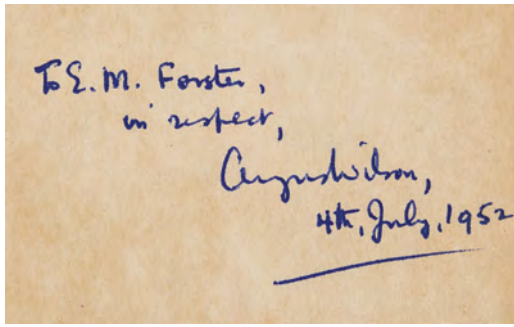 To E. M. Forster,
in respect,
Angus Wilson,
4th, July, 1952